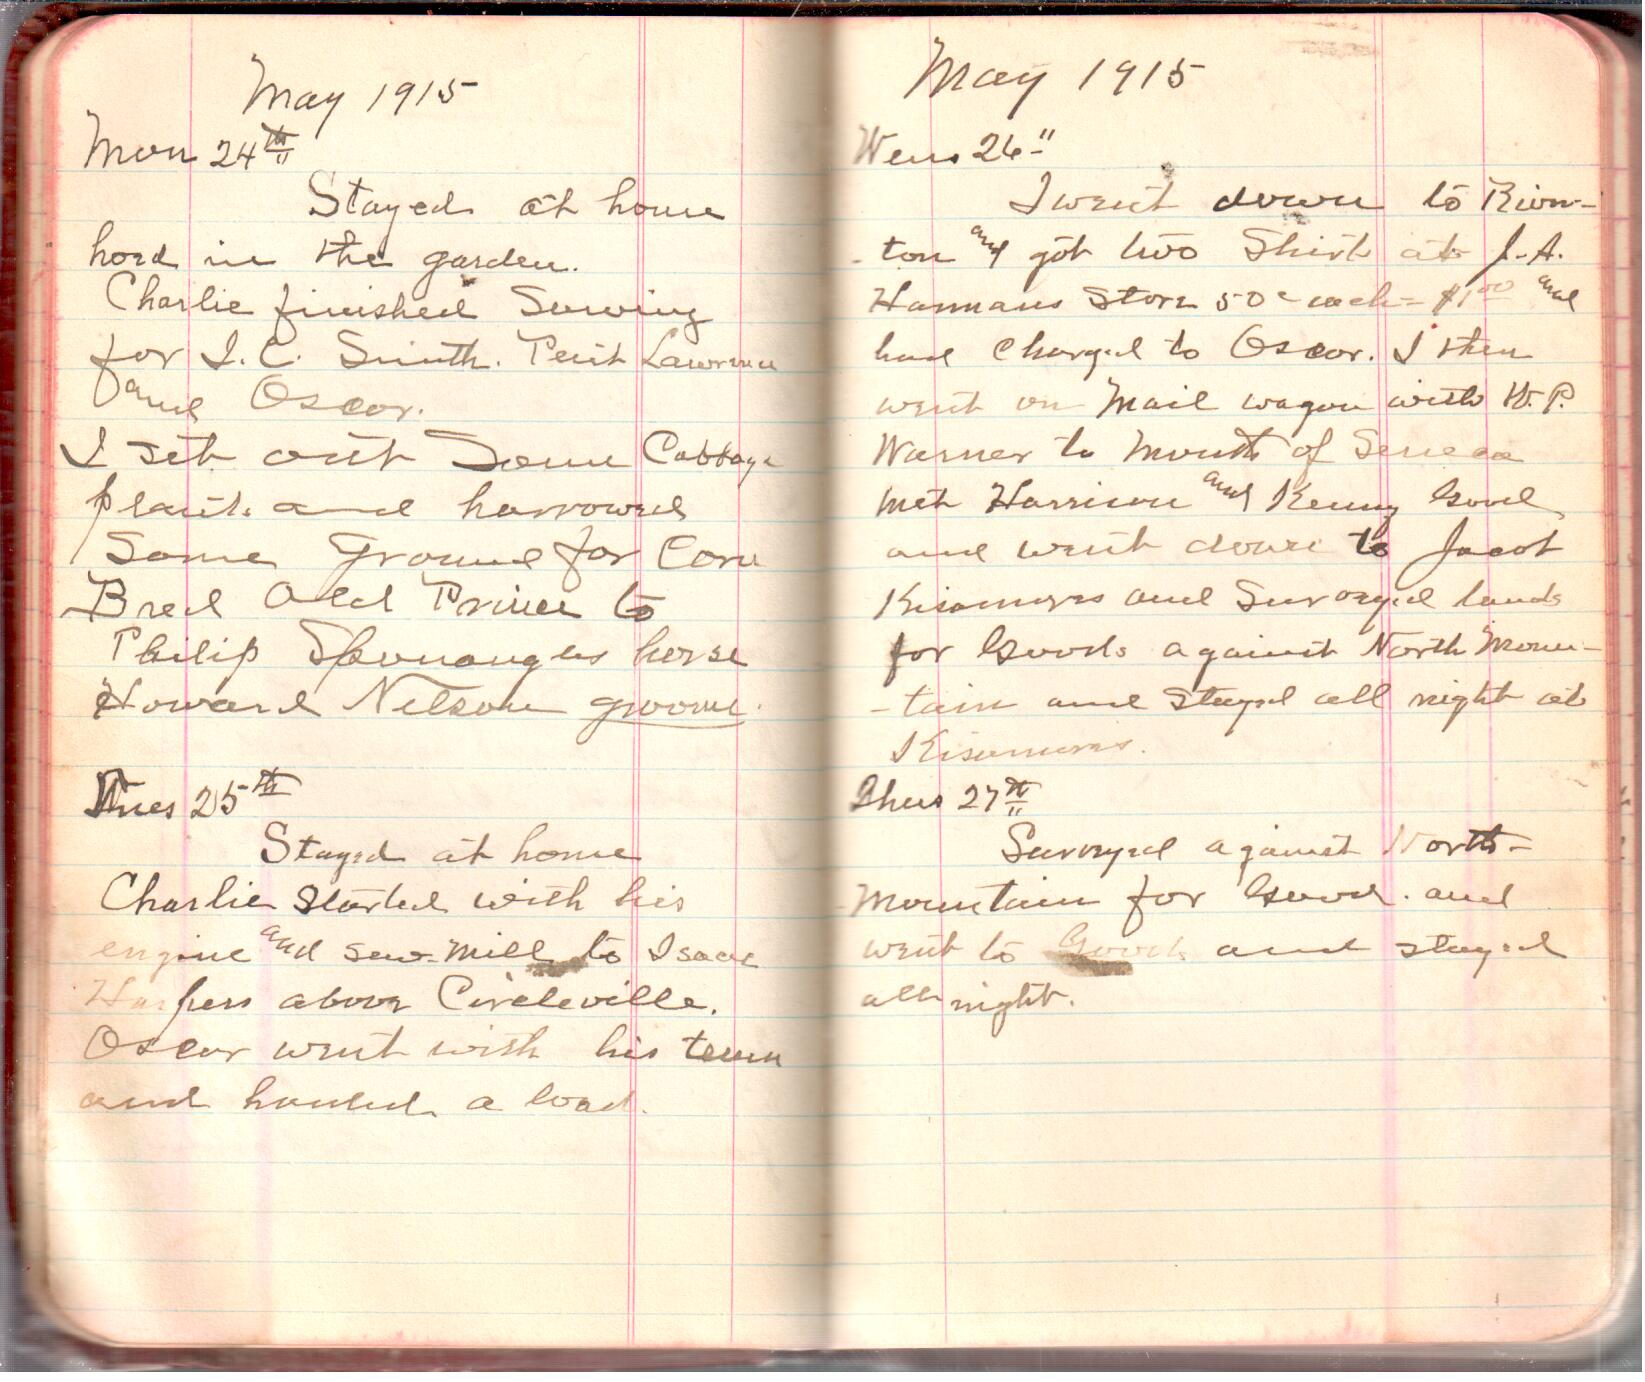 May 1915
Mon 24th
Stayed at home
hoed in the garden.
Charlie finished Sawing
for I. C. Smith. Pent Lawrence
and Oscor.
I set out Some Cabbage
plants and harrowed
Some Ground for Corn
Bred Old Prince to
Philip Sponaugles horse
Howard Nelson groome.
Tues 25th
Stayed at home
Charlie started with his
engine and saw-mill to Isaac
Harpers above Circleville.
Oscar went with his team
and hauled a load.
May 1915
Wens 26"
I went down to River-
-ton and got two Shirts at J. A.
Harmans Store 50c each - $1.00 and
had Charged to Oscor. I then
went on Mail wagon with W. P.
Warner to Mouth of Seneca
met Harrison and Kenny Good
and went down to Jacob
Kisamores and Surveyed lands
for Goods against North Moun-
-tain and Stayed all night at
Kisamores.
Thurs 27th
Surveyed against North-
Mountain for Good. and
went to Goods and stayed
all night.